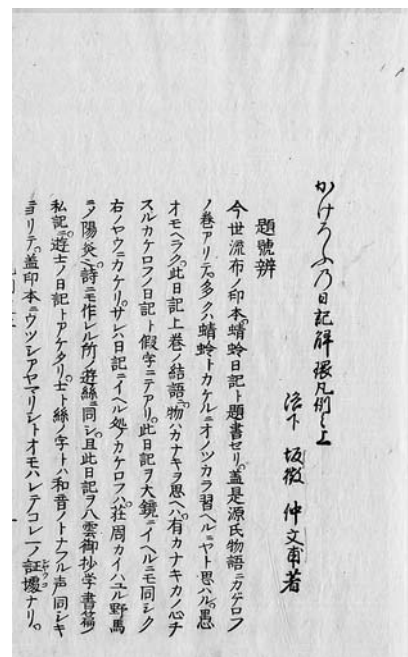 かけろふ乃日記解環凡例之上
浪下 坂徴 仲文甫著
題號辨
今世流布ノ印本。蜻蛉日記ト題書セリ。蓋是源氏物語ニカゲロフ
ノ巻アリテ。多クハ蜻蛉トカケルニオノツカラ習ヘルニヤト思ハル。愚
オモヘラク。此日記上巻ノ結語ニ物ハカナキヲ思ヘハ。有カナキカノ心チ
スルカケロフノ日記ト假字ニテアリ。此日記ヲ大鏡ニイヘルニモ同シク
右ノヤウニカケリ。サレハ日記ニイヘル処ノカケロフハ。荘周カイハユル野馬
ニノ陽炎ヘ。詩ニモ作レル所ノ遊絲ニ同シ。且此日記ヲ八雲御抄学書篇ニ
私記ニ遊士ノ日記トアケタリ。士ト絲ノ字トハ和音ノトナフル声同シキ
ヨリテ。蓋印本ニウツシアヤマリシトオモハレテコレ一ノ証壞ナリ。